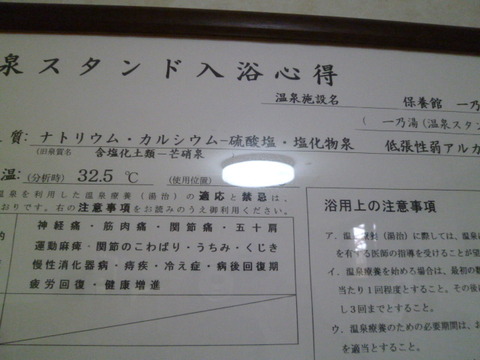 泉スタンド入浴心得
温泉施設名 保養館 一乃
( 一乃湯(温泉スタン
質: ナトリウム・カルシウム−硫酸塩・塩化物泉 低張性弱アルカ
(旧泉質名 含塩化土類−芒硝泉
温:(分析時) 32.5 ℃ (使用位置)
泉を利用した温泉療養(湯治)の適応と禁忌は、
おりです。右の注意事項をお読みのうえ御利用ください。
神経痛・筋肉痛・関節痛・五十肩
運動麻痺・関節のこわばり・うちみ・くじき
慢性消化器病・痔疾・冷え症・病後回復期
疲労回復・健康増進
浴用上の注意事項
ア. 温泉療養(湯治)に際しては、温泉
を有する医師の指導を受けることが望
イ. 温泉療養を始める場合は、最初の数
当たり1回程度とすること。その後は
し3回までとすること。
ウ. 温泉療養のための必要期間は、お
を適当とすること。